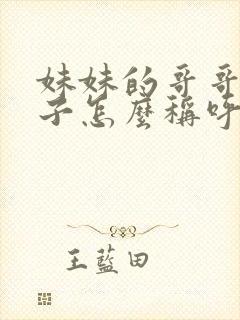 妹妹的哥哥
子怎麼稱呼
王藍田